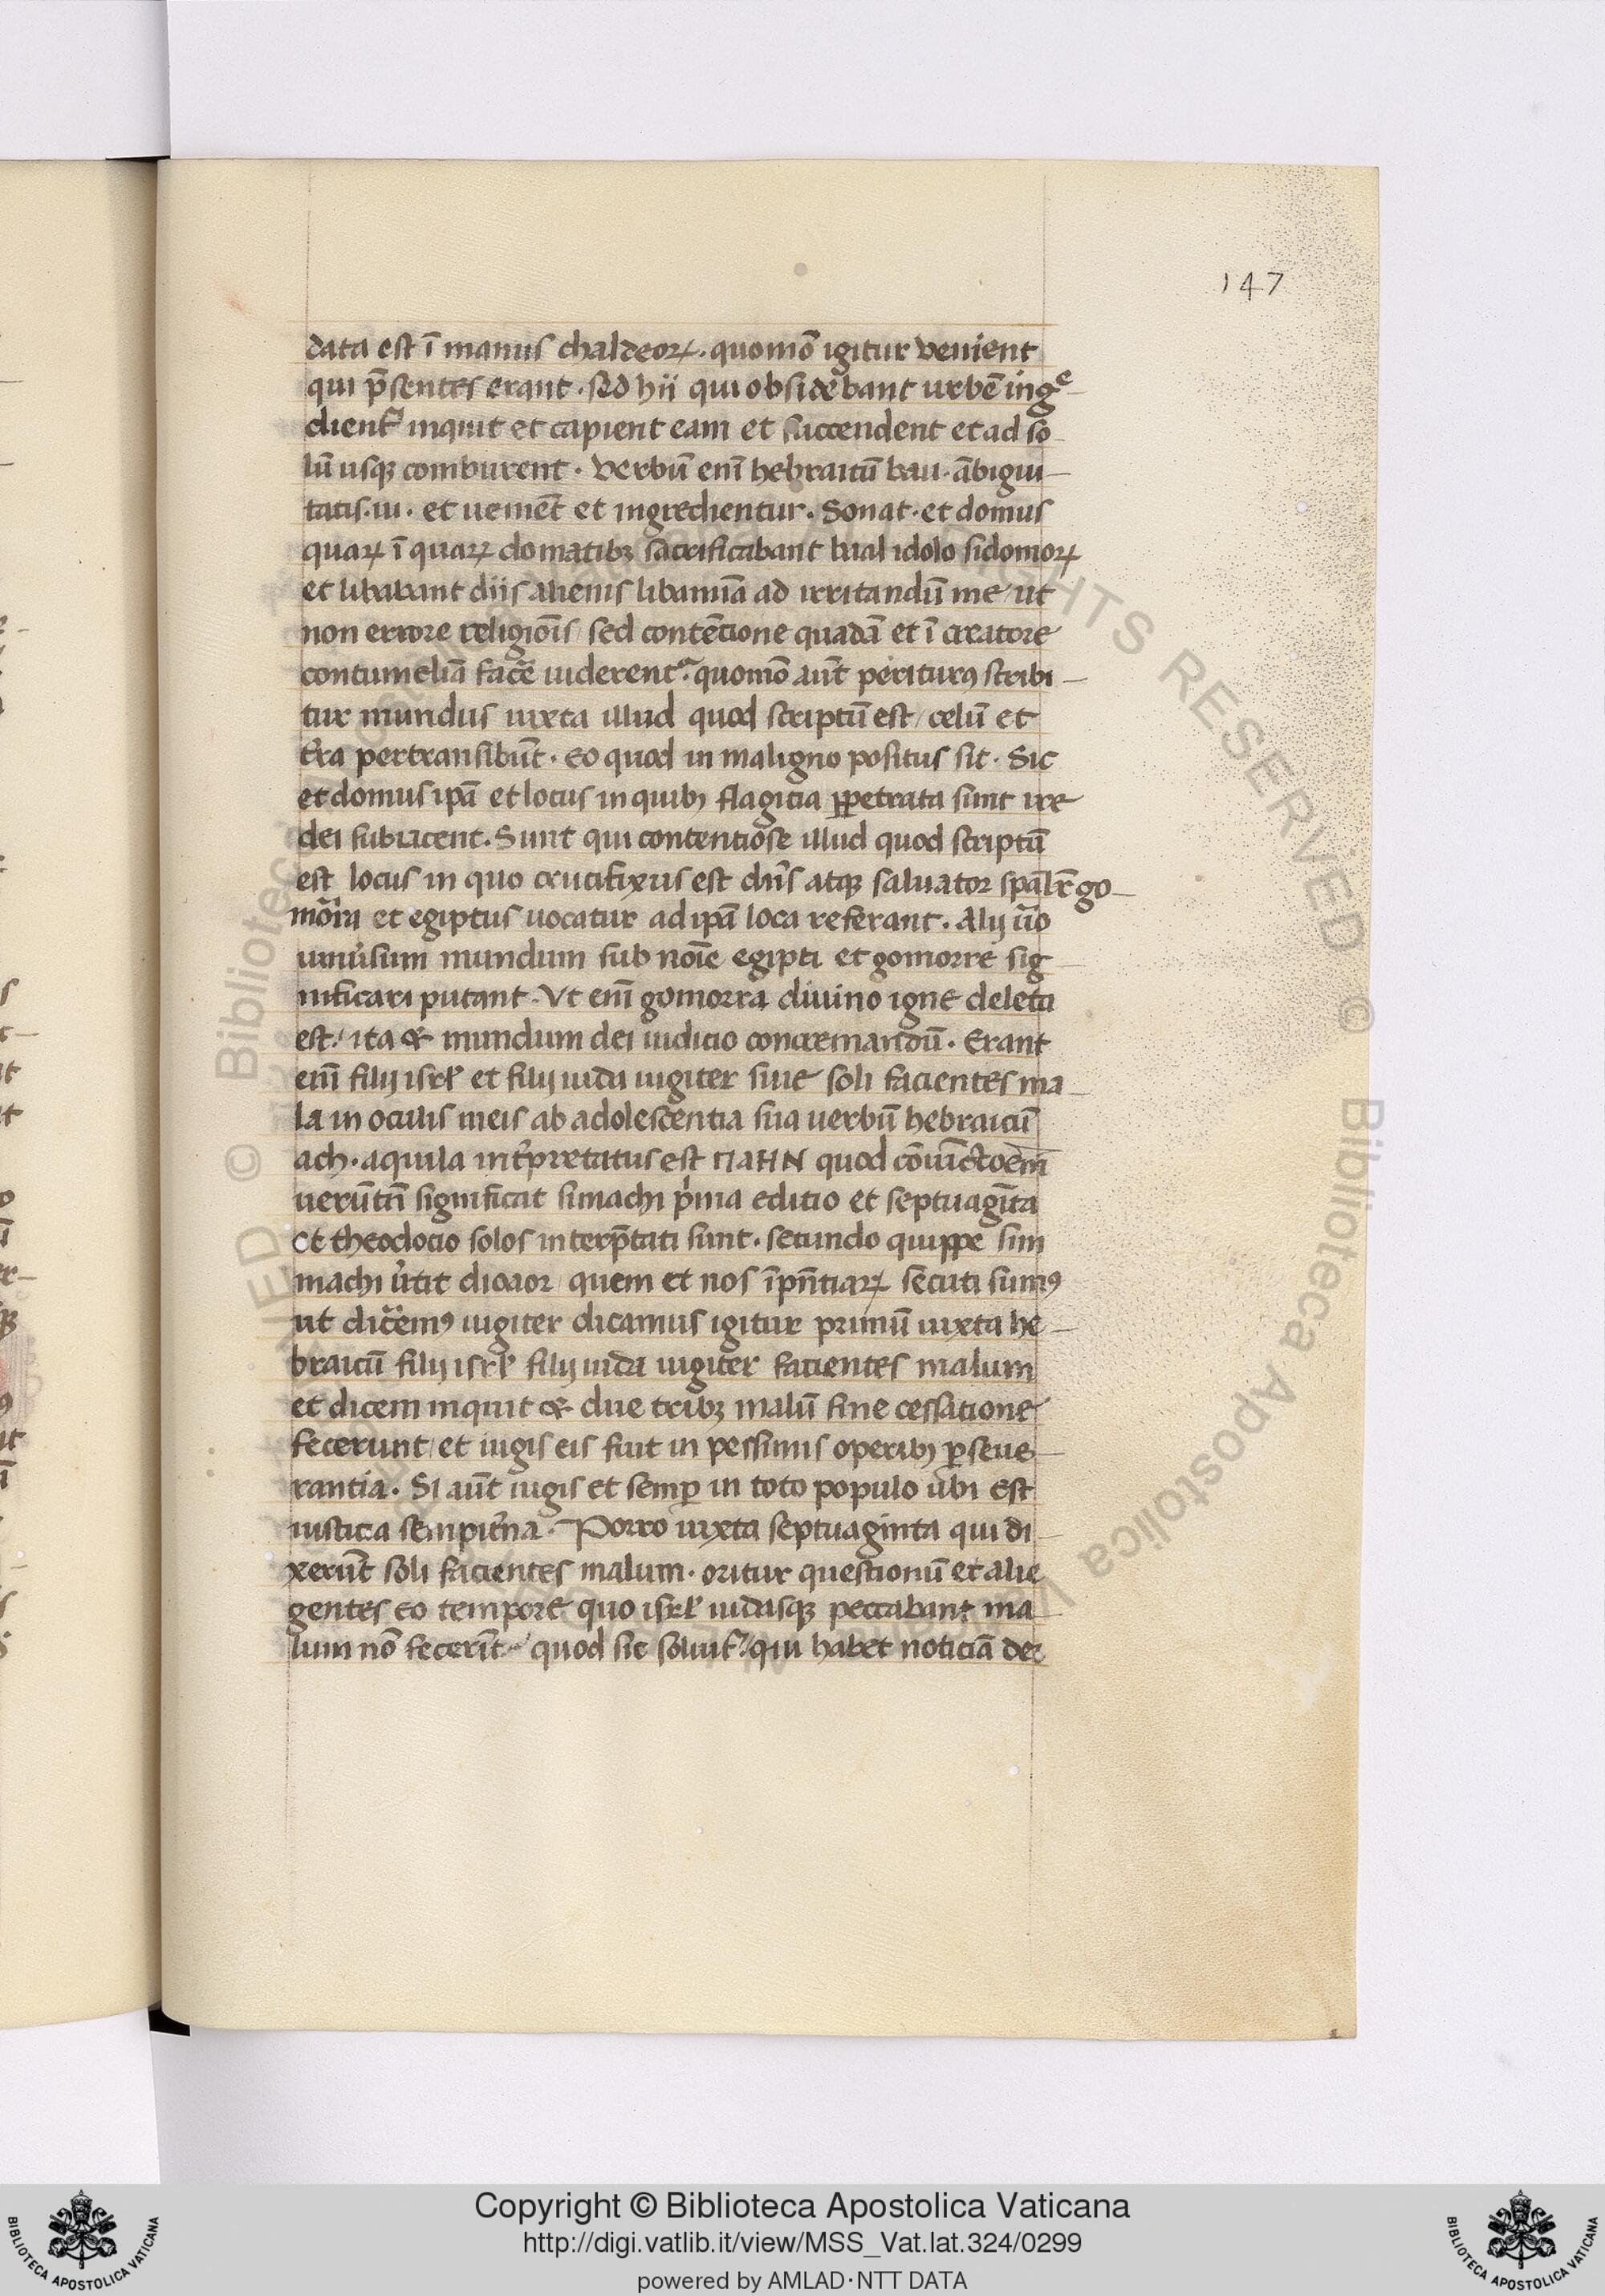 147
data est ī manus chaldeoꝝ. quomō igitur venient
qui p̄sentes erant. sed hii qui obsidebant urbē ingͤ
dient᷑ inquit et capient eam et succendent et ad so
lū usqꝫ comburent. verbū enī hebraicū bau. ābigui
tatis. iu. et ueniēt et ingredientur. Sonat. et domus
quaꝝ ī quaꝝ domatibꝫ sacrificabant baal idolo sidonioꝝ
et libabant diis alienis libamīa ad irritandū me / ut
non errore religiōis / sed contētione quadā et ī creatore
contumeliā facē uiderent᷑. quomō aūt periturꝰ scribi
tur mundus iuxta illud quod scriptū est / celū et
tr̄a pertransibūt. eo quod in maligno positus sit. Sic
et domus ipā et locus in quibꝫ flagicia ꝑpetrata sunt ire
dei subiacent. Sunt qui contentiose illud quod scriptū
est locus in quo crucifixus est dn̄s atqꝫ saluator spālr̄ go
morra et egiptus uocatur ad ipā loca referant. Alij ūo
uniūsum mundum sub noīe egipti et gomorre sig
nificari putant. Vt enī gomorra diuino igne deleta
est / ita & mundum dei iudicio concremandū. Erant
enī filij isrl̄ et filij iuda iugiter siue soli facientes ma
la in oculis meis ab adolescentia sua uerbū hebraicū
ach. aquila int̄pretatus est ΠΑΗΝ quod
uerūtn̄ significat simachi pͥma editio et septuagīta
et theodocio solos interp̄tati sunt. secundo quippe sim
machi ūtit quem et nos secuti sumꝰ
ut dicēmꝰ iugiter dicamus igitur primū iuxta he
braicū filij isrl̄ filij iuda iugiter facientes malum
et dicem inquit & due tribꝫ malū sine cessatione
fecerunt / et iugis eis fuit in pessimis operibꝫ ꝑseue
rantia. Si aūt iugis et semꝑ in toto populo ubi est
iusticia sempit̄na. Porro iuxta septuaginta qui di
xerūt soli facientes malum. oritur questionū et alie
gentes eo tempore quo isrl̄ iudasqꝫ peccabant ma
lum nō fecerīt. quod sic soluit᷑. qui habet noticiā dei
Copyright © Biblioteca Apostolica Vaticana
http://digi.vatlib.it/view/MSS_Vat.lat.324/0299
powered by AMLAD·NTT DATA